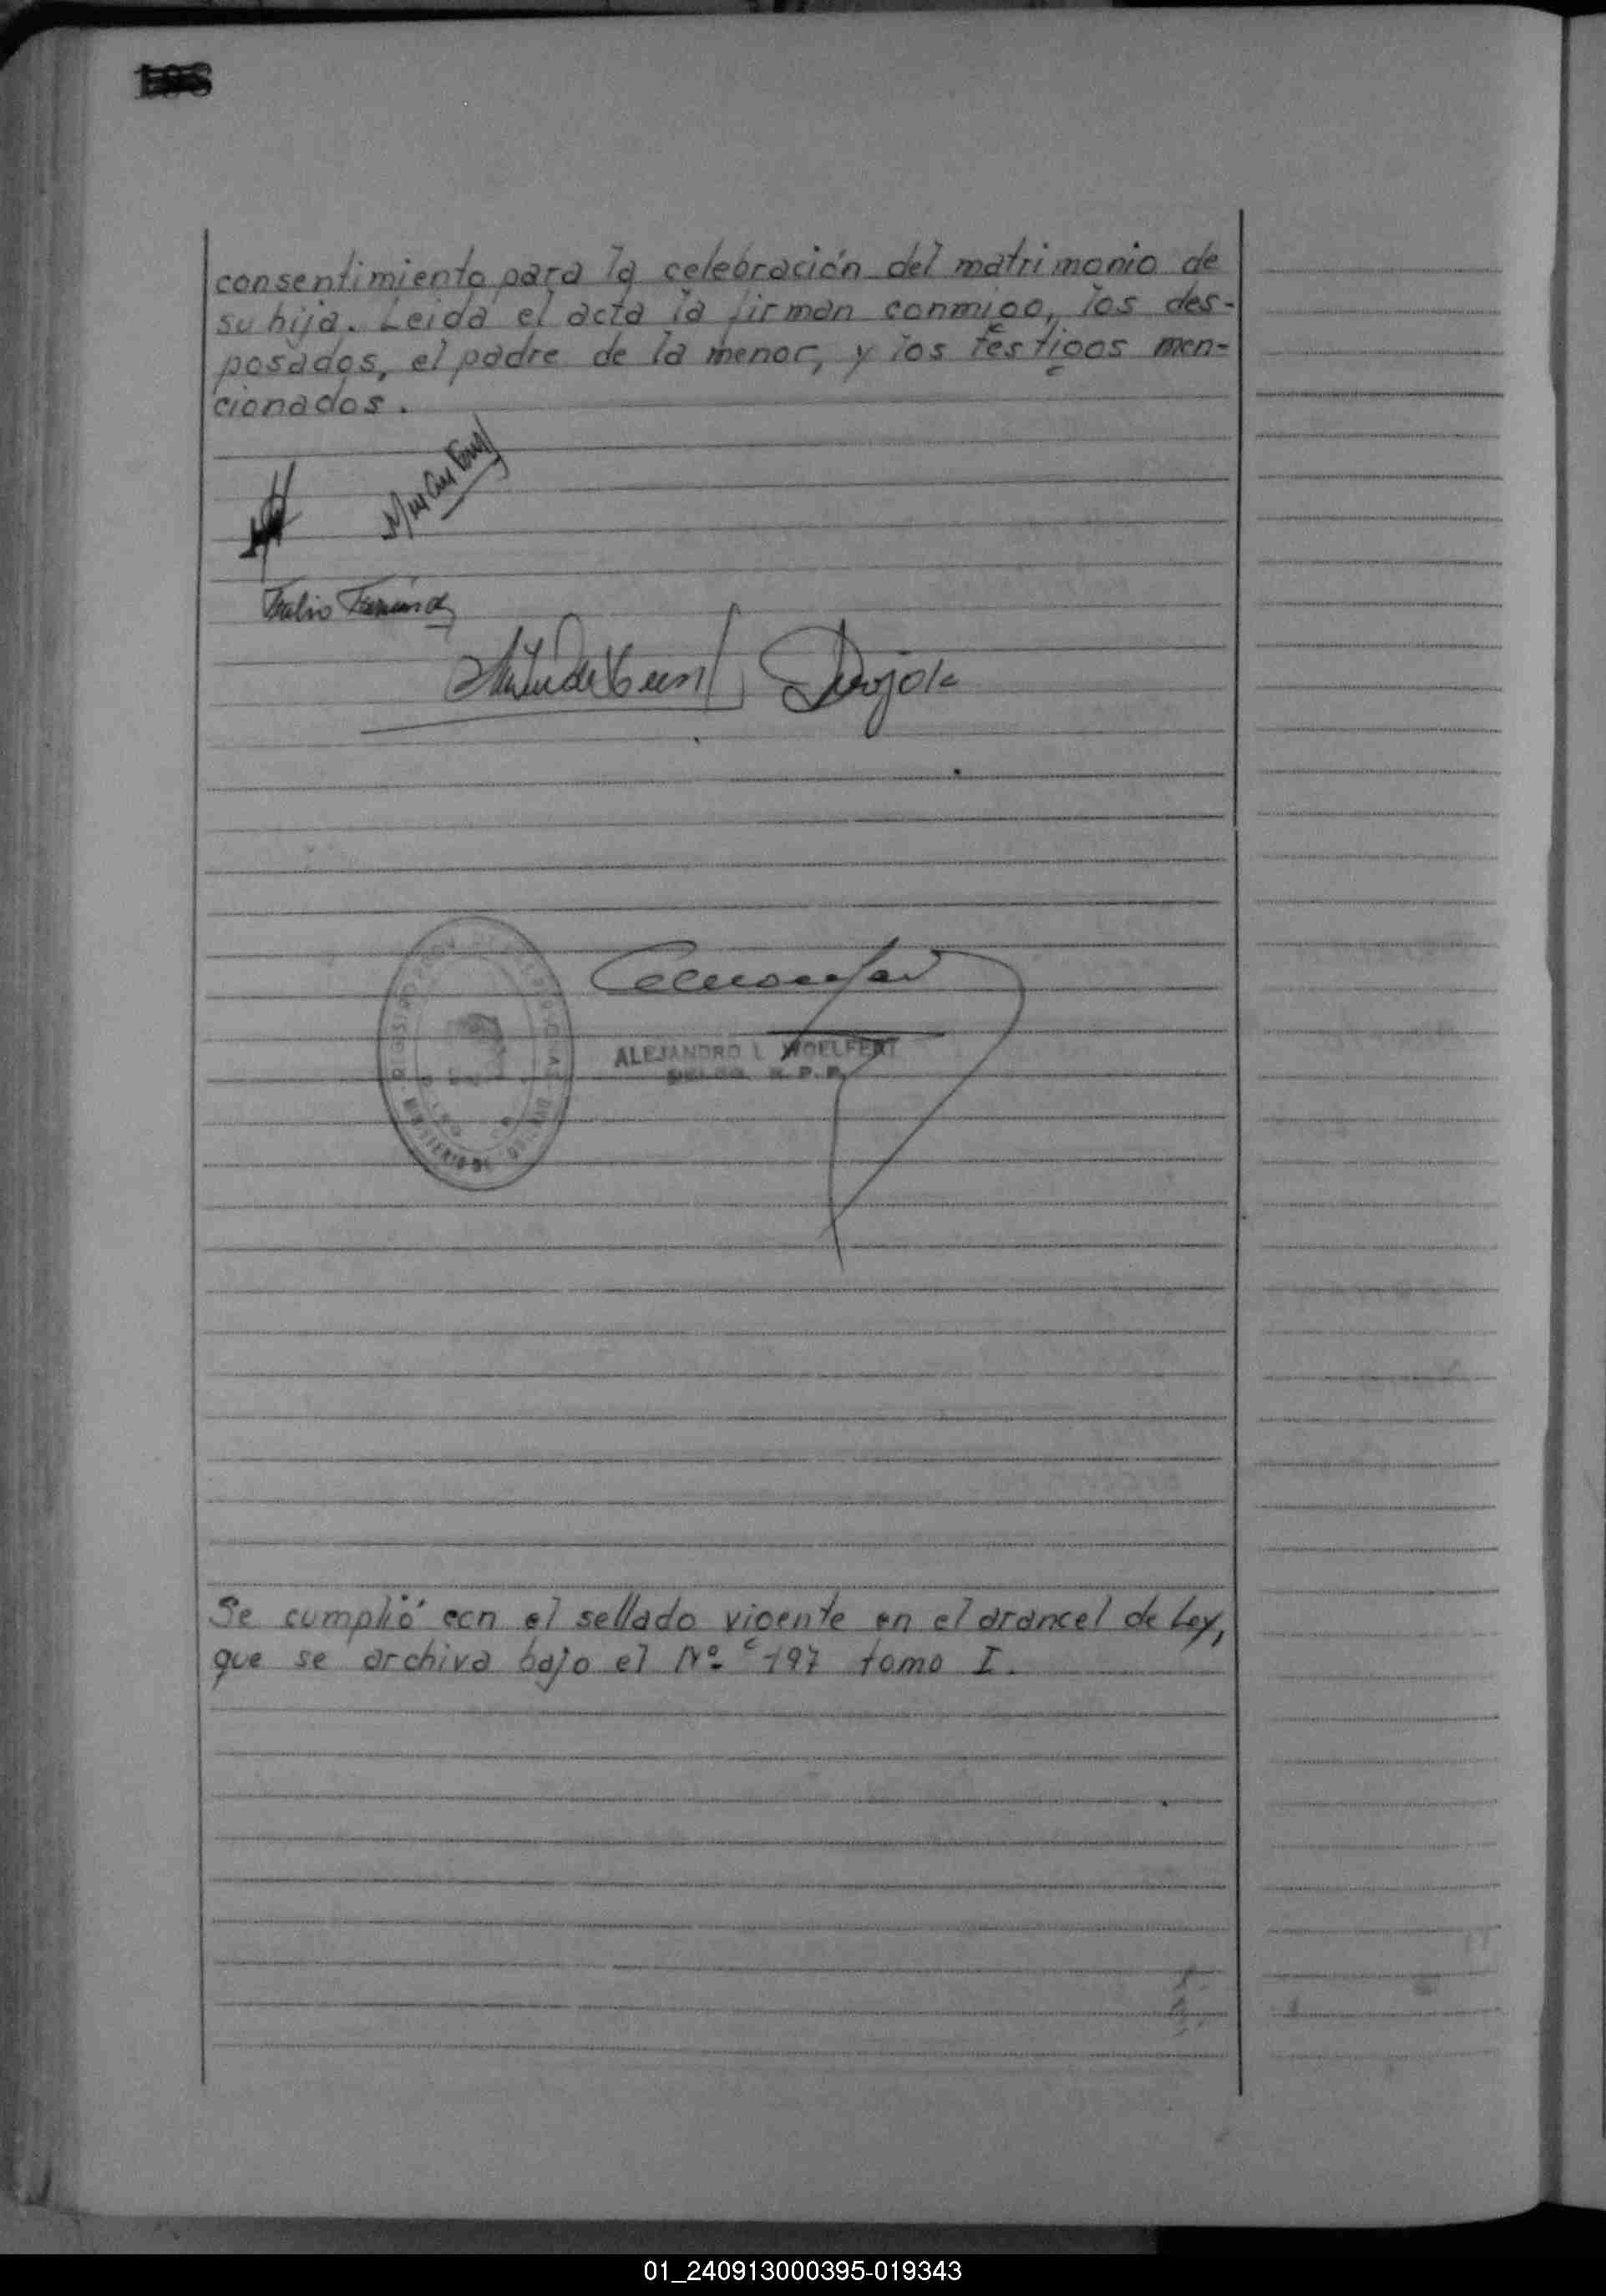 consentimiento para la celebración del matrimonio de
su hija. Leida el acta la firman conmigo, los des-
posados, el padre de la menor, y los testigos men-
cionados.
ALEJANDRO L WOELFERT
Se cumplió con el sellado vigente en el arancel de Ley,
que se archiva bajo el Nº 197 tomo I.
01_240913000395-019343